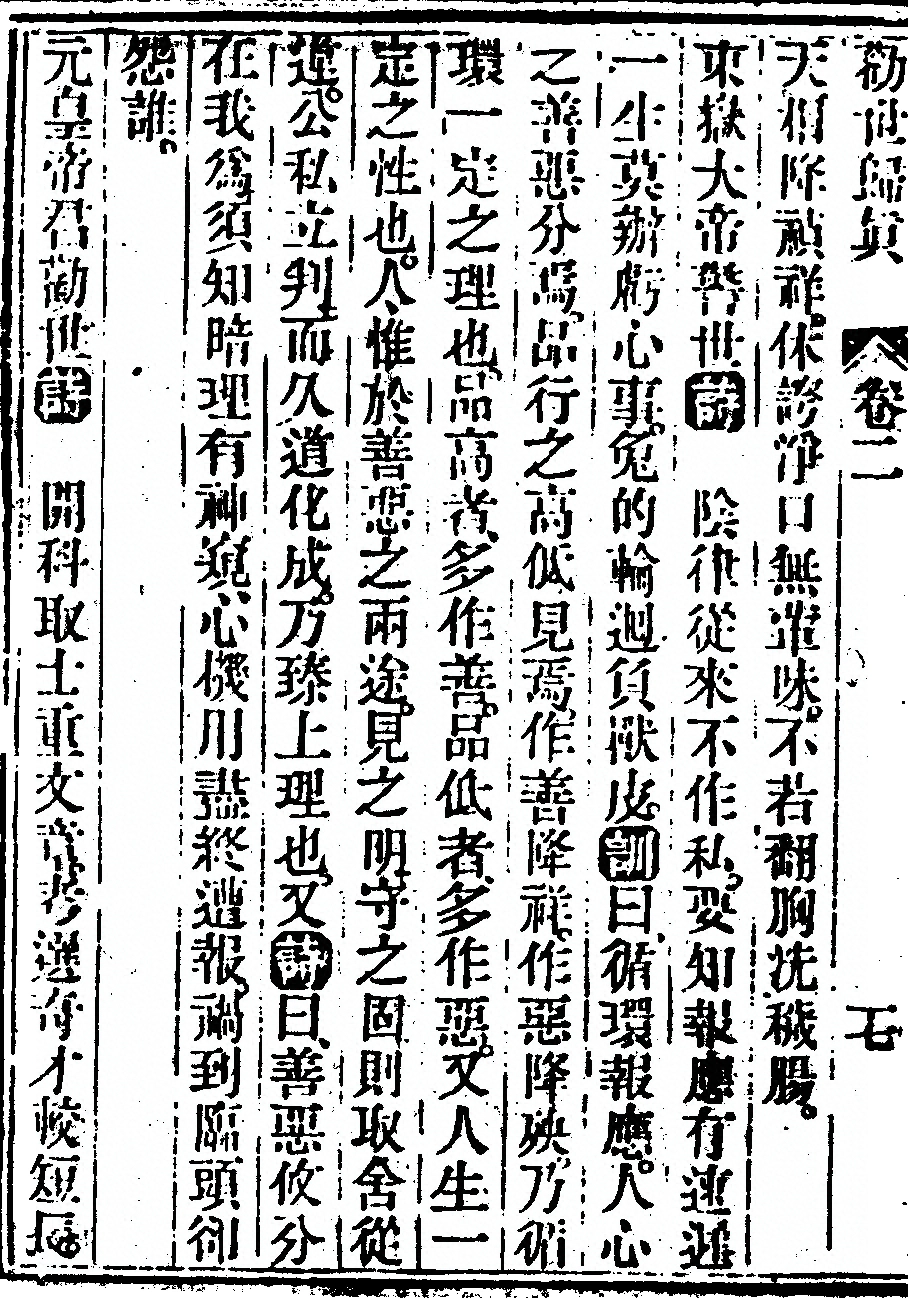 勸世歸眞 卷二 七
天相降禎祥。休誇淨口無葷味。不若翻胸洗穢腸。
東嶽大帝警世詩 陰律從來不作私。要知報應有速遲
一生莫辦虧心事。免的輪迴負獸皮。訓曰循環報應。人心
之善惡分焉。品行之高低見焉。作善降祥。作惡降殃。乃循
環一定之理也。品高者、多作善。品低者、多作惡。又人生一
定之性也。人、惟於善惡之兩途。見之明、守之固則取舍從
違。公私立判、而久道化成。乃臻上理也。又詩曰、善惡攸分
在我爲、須知暗理有神窺、心機用盡終遭報、禍到臨頭卻
怨誰。
元皇帝君勸世詩 開科取士重文章。考選奇才較短長。